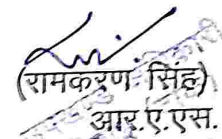 (रामकरण सिंह)
आर.ए.एस